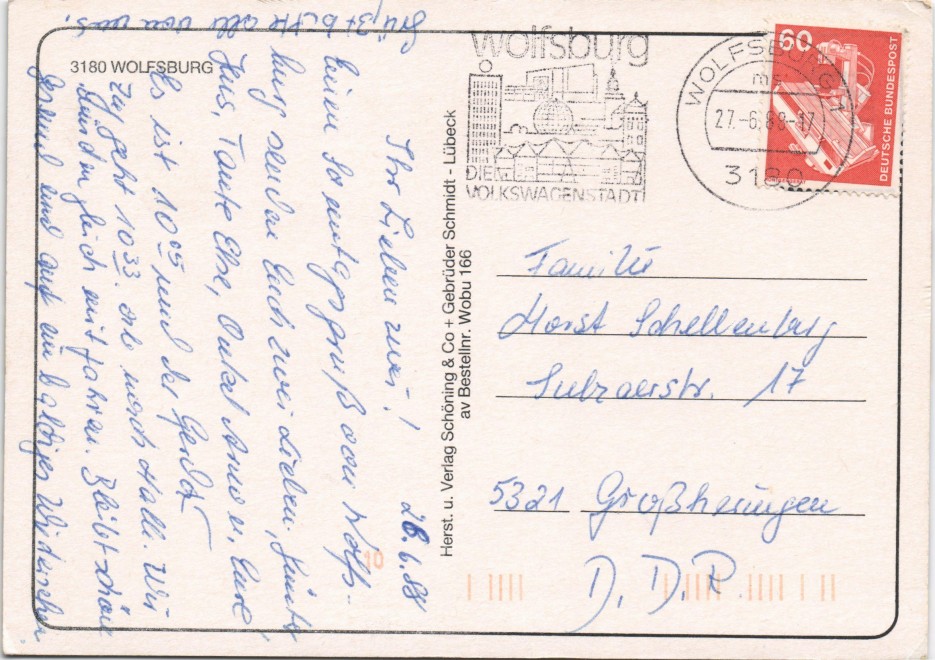 3180 WOLFSBURG
Ihr Lieben zwei! 26.6.88
Einen Sonntagsgruß von Wolfs-
burg senden Euch zwei Lieben, Günter
Tante Else, Onkel
Es ist 10 05 und der
Zug geht 10 33. nach Halle. Wir
gleich mit fahren. Bleibt schön
gesund und auf ein baldiges Wiedersehn.
Grüßt bitte alle von uns.
Herst. u. Verlag Schöning & Co + Gebrüder Schmidt - Lübeck
av Bestellnr. Wobu 166
wolfsburg
DIE
VOLKSWAGENSTADT
WOLFSBURG 1
ms
27.-6.88-17
3180
60
DEUTSCHE BUNDESPOST
Familie
Horst Schellenberg
Sulzaerstr. 17
5321 Großheringen
D.D.R.
10